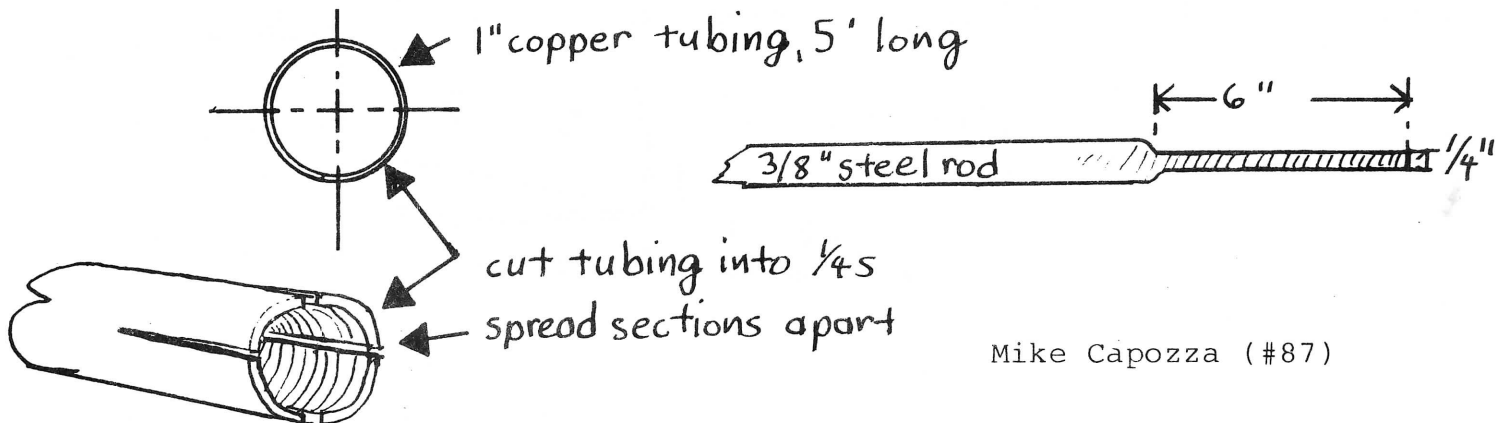 1" copper tubing, 5' long
6"
3/8" steel rod
1/4"
cut tubing into 1/4s
spread sections apart
Mike Capozza (#87)